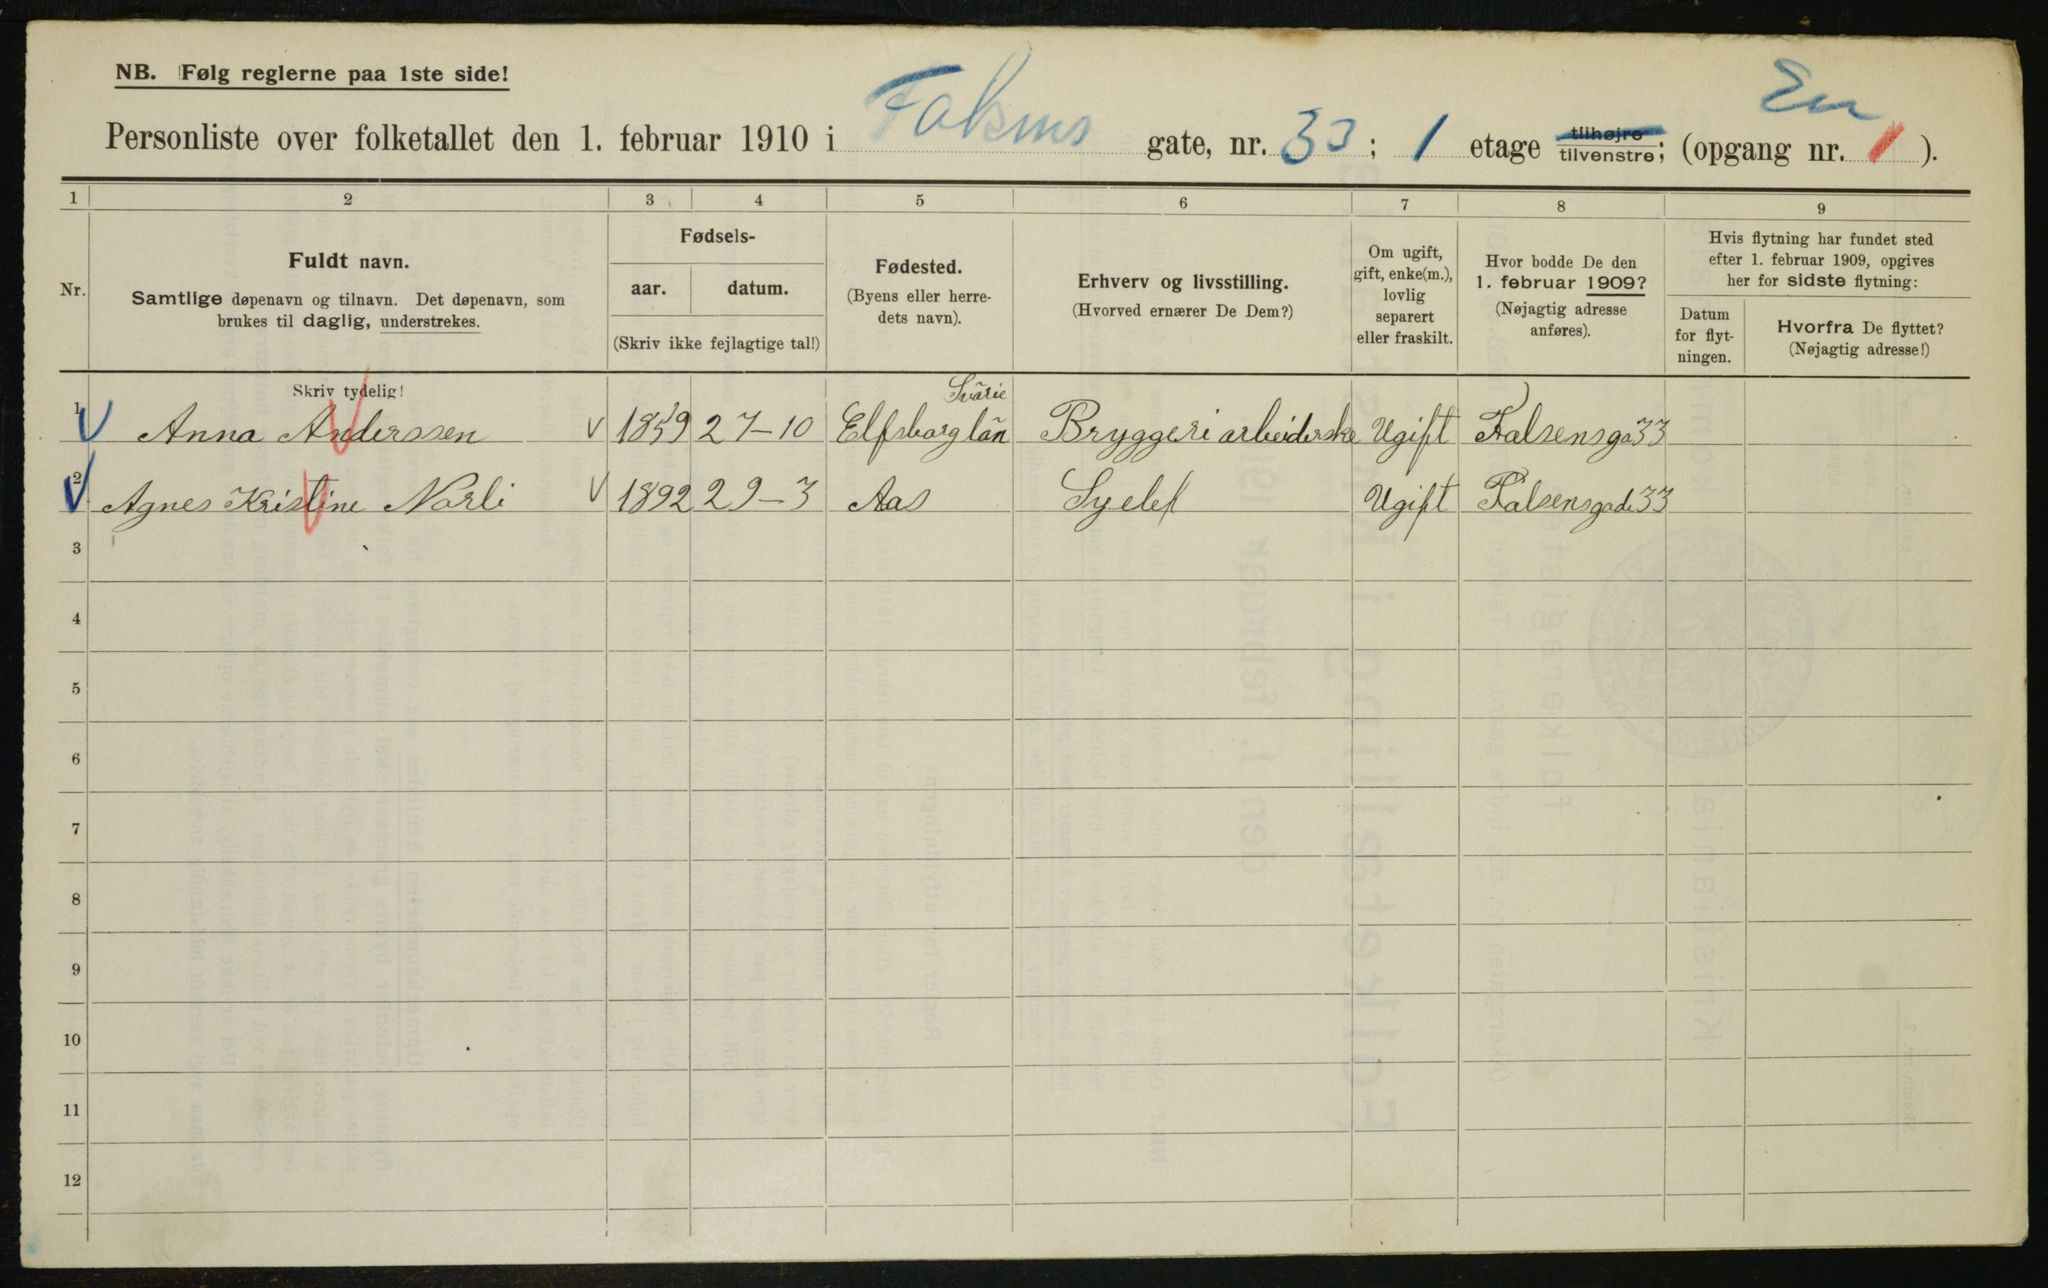 NB. Følg reglerne paa 1ste side!
Personliste over folketallet den 1. februar 1910 i Falsens gate, nr. 33; 1 etage tilhøjre tilvenstre; (opgang nr. 1).
1 2 3 4 5 6 7 8 9
Nr.
Fuldt navn.
Samtlige døpenavn og tilnavn. Det døpenavn, som
brukes til daglig, understrekes.
Fødsels-
aar. datum.
(Skriv ikke fejlagtige tal!)
Fødested.
(Byens eller herre-
dets navn).
Erhverv og livsstilling.
(Hvorved ernærer De Dem?)
Om ugift,
gift, enke(m.),
lovlig
separert
eller fraskilt.
Hvor bodde De den
1. februar 1909?
(Nøjagtig adresse
anføres).
Hvis flytning har fundet sted
efter 1. februar 1909, opgives
her for sidste flytning:
Datum
for flyt-
ningen.
Hvorfra De flyttet?
(Nøjagtig adresse!)
Skriv tydelig!
Svärie
1 Anna Anderssen 1859 27-10 Elfsborg län Bryggeriarbeiderske Ugift Falsensga 33
2 Agnes Kristine Norli 1892 29-3 Aas Syelef Ugift Falsensgade 33
3
4
5
6
7
8
9
10
11
12